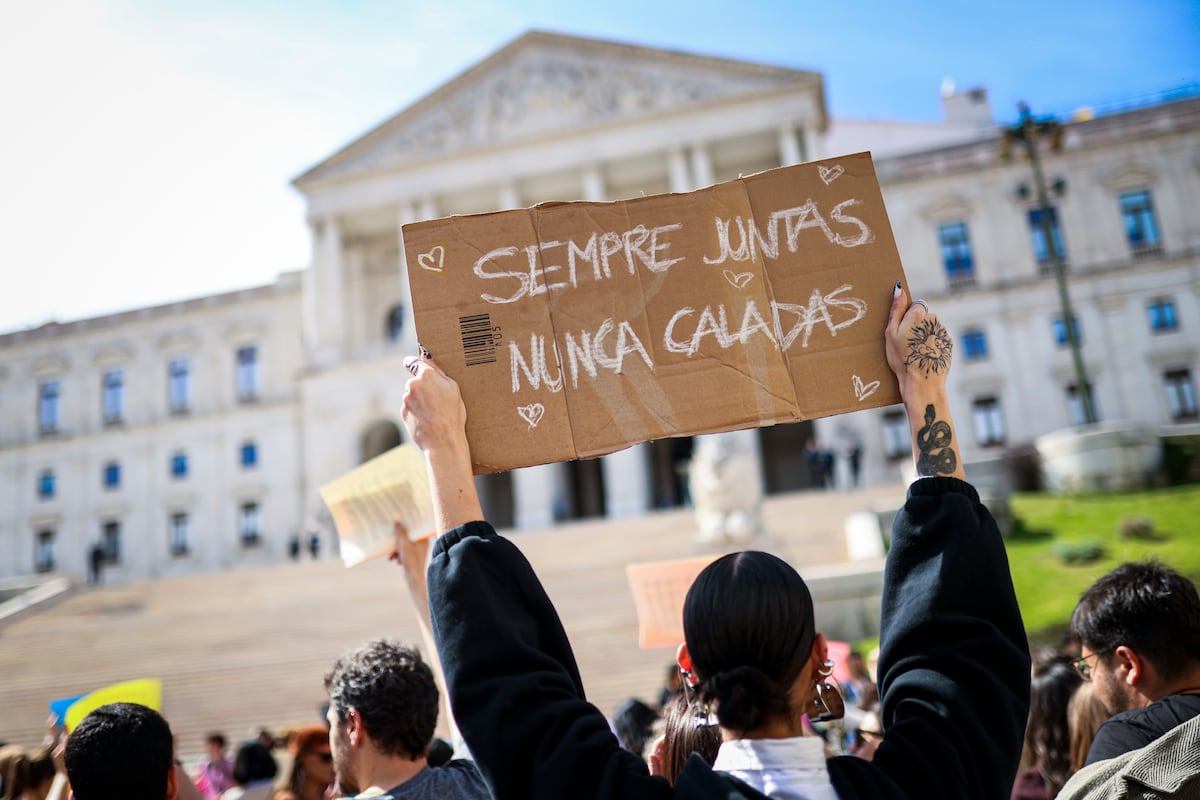 SEMPRE JUNTAS
NUNCA CALADAS